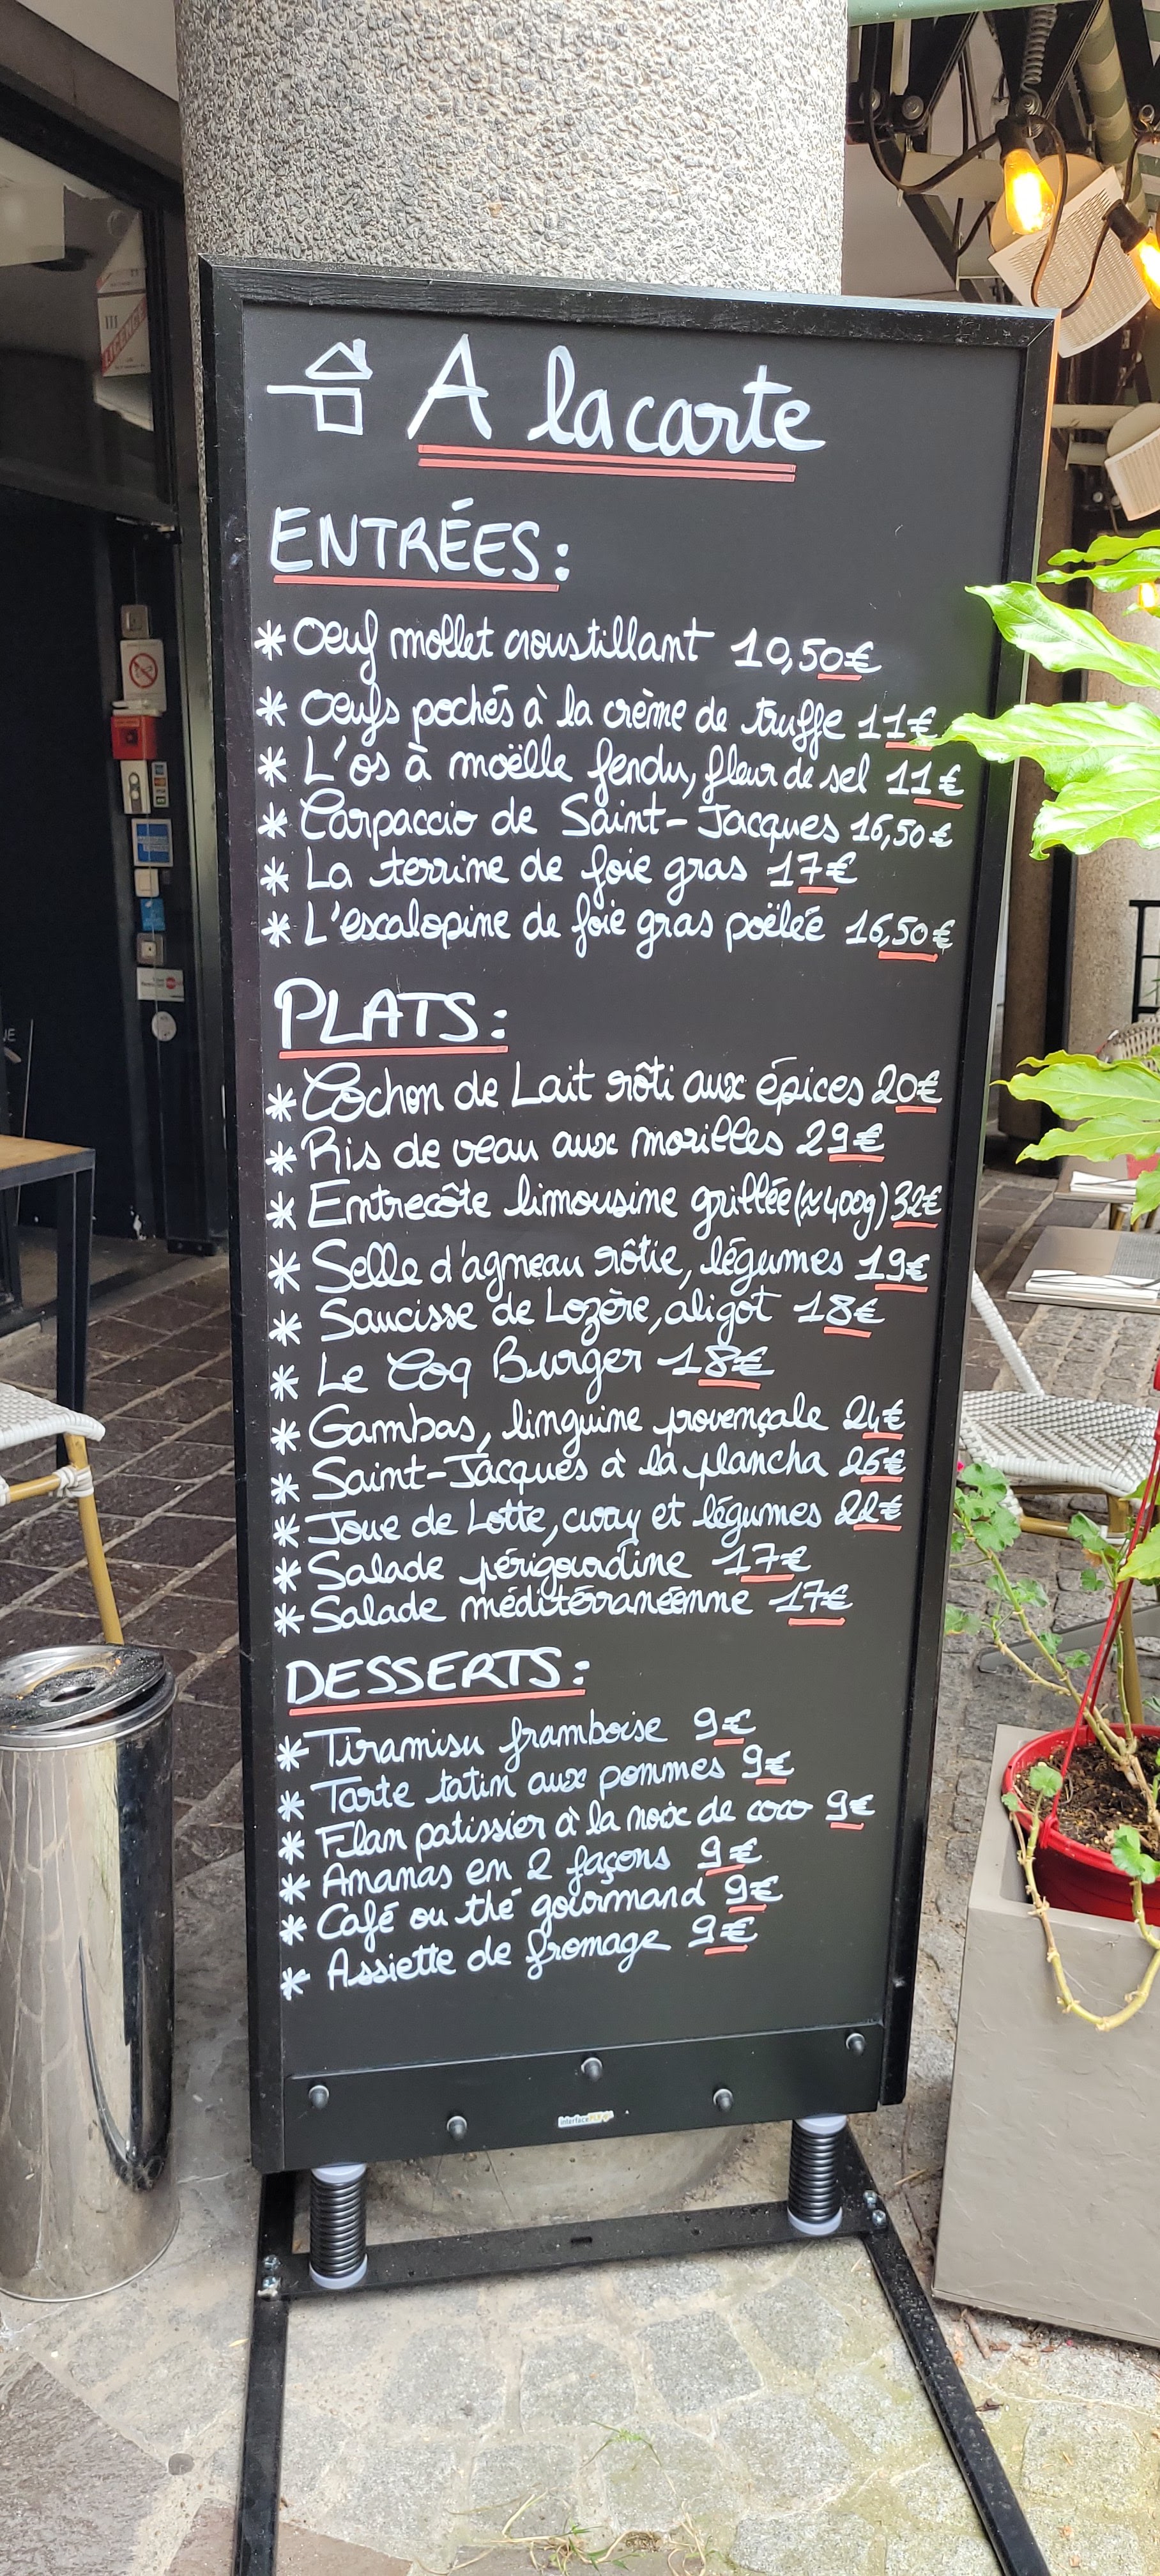 A la carte
ENTRÉES:
* Oeuf mollet croustillant 10,50€
* Oeufs pochés à la crème de truffe 11€
* L'os à moëlle fendu, fleur de sel 11€
* Carpaccio de Saint-Jacques 16,50€
* La terrine de foie gras 17€
* L'escalopine de foie gras poëlée 16,50€
PLATS:
* Cochon de Lait rôti aux épices 20€
* Ris de veau aux morilles 29€
* Entrecôte limousine grillée (≈400g) 32€
* Selle d'agneau rôtie, légumes 19€
* Saucisse de Lozère, aligot 18€
* Le Coq Burger 18€
* Gambas, linguine provençale 24€
* Saint-Jacques à la plancha 26€
* Joue de Lotte, curry et légumes 22€
* Salade périgourdine 17€
* Salade méditérranéenne 17€
DESSERTS:
* Tiramisu framboise 9€
* Tarte tatin aux pommes 9€
* Flan patissier à la noix de coco 9€
* Ananas en 2 façons 9€
* Café ou thé gourmand 9€
* Assiette de fromage 9€
III
LICENCE